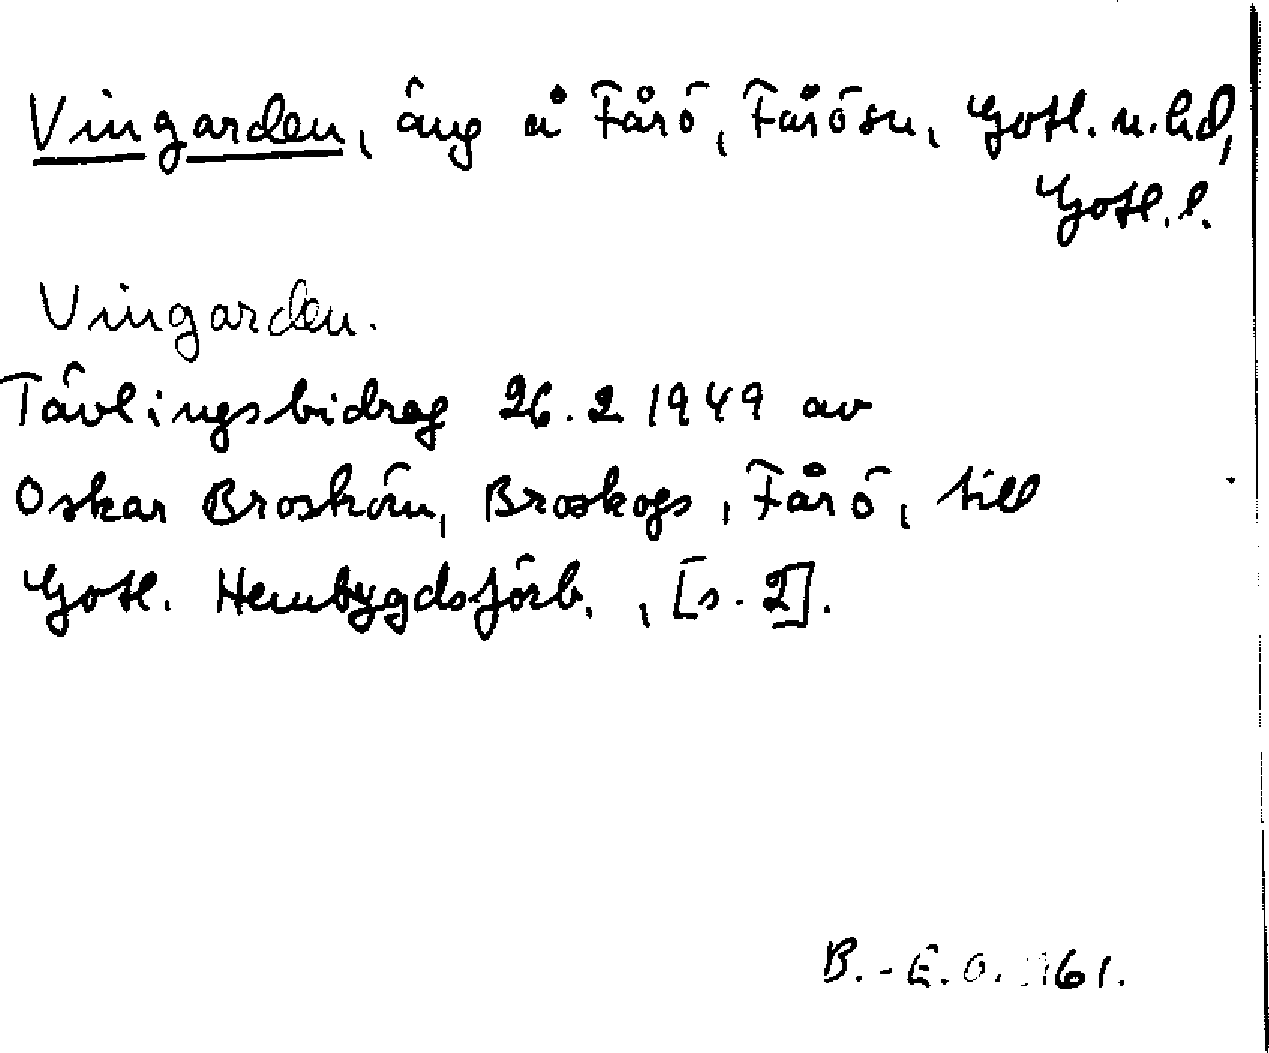 Vingarden, äng å Fårö, Fårösn, Gotl. n. hd,
Gotl. l.
Vingarden.
Tävlingsbidrag 26.2 1949 av
Oskar Broskörn, Broskogs, Fårö, till
Gotl. Hembygdsförb., [s. 2].
B.-E. O. 1961.